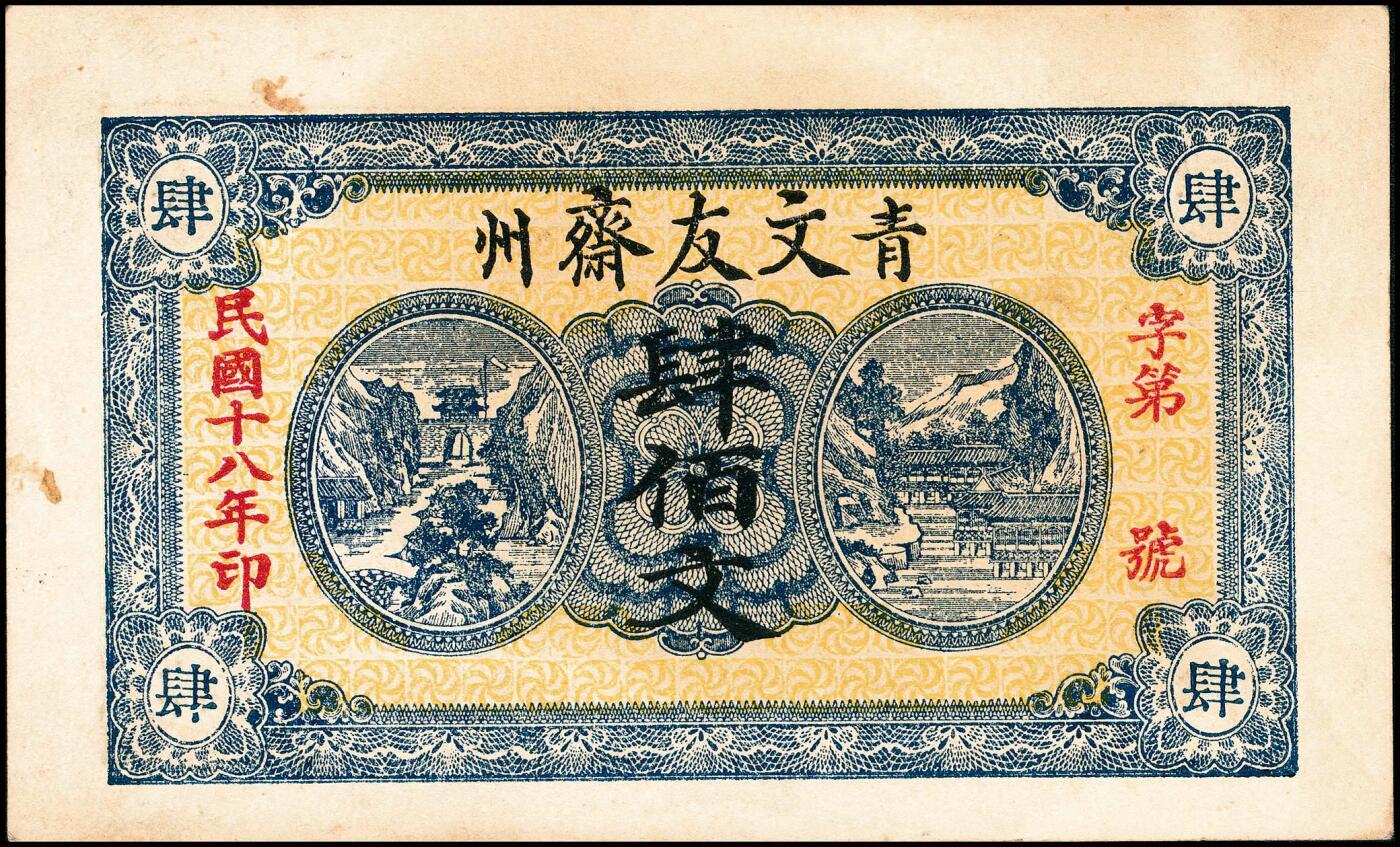 肆
肆
青文友齋州
字第 號
肆佰文
民國十八年印
肆
肆